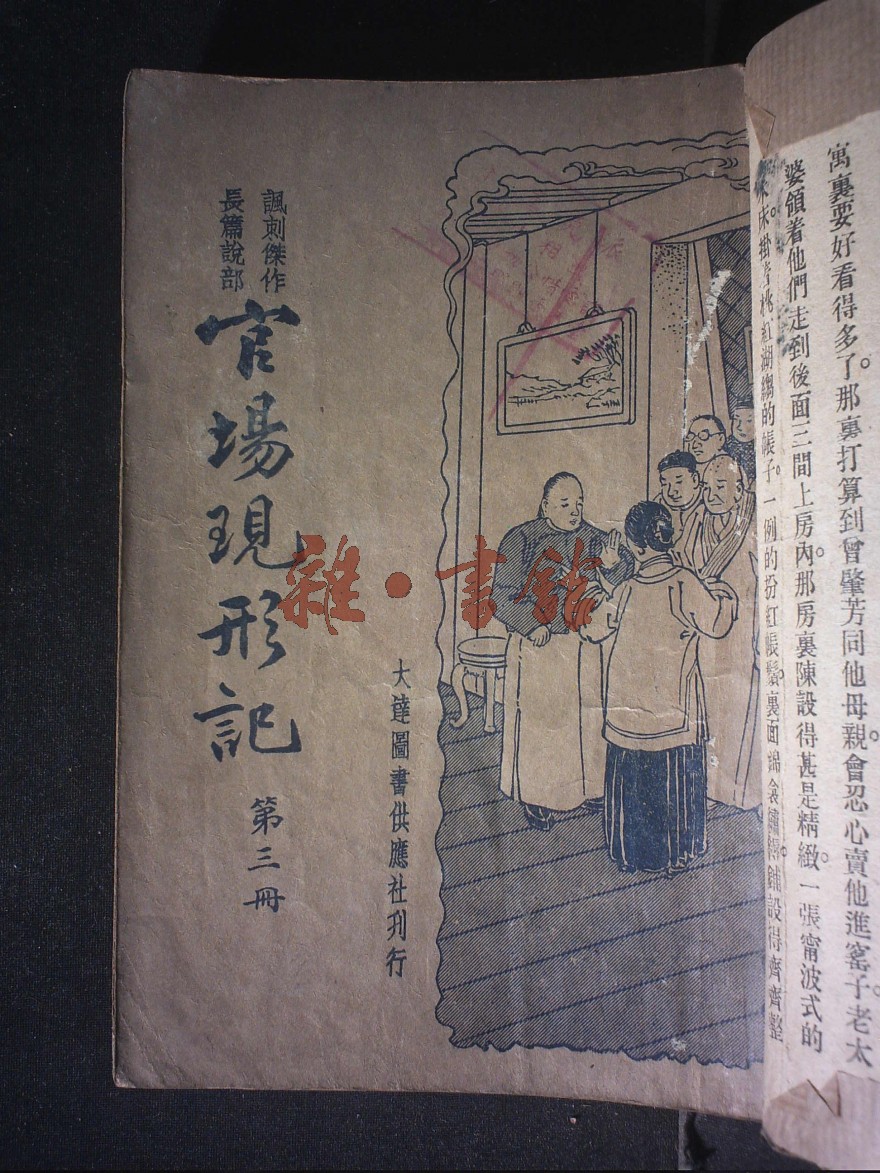 諷刺傑作
長篇說部
官場現形記
第三冊
大達圖書供應社刋行
雜·書館
寓裏要好看得多了。那裏打算到曾肇芳同他母親會忍心賣他進窰子。老太
婆領着他們走到後面三間上房內。那房裏陳設得甚是精緻。一張甯波式的
床。掛着桃紅湖縐的帳子。一例的粉紅帳鬚。裏面錦衾繡褥。鋪設得齊齊整